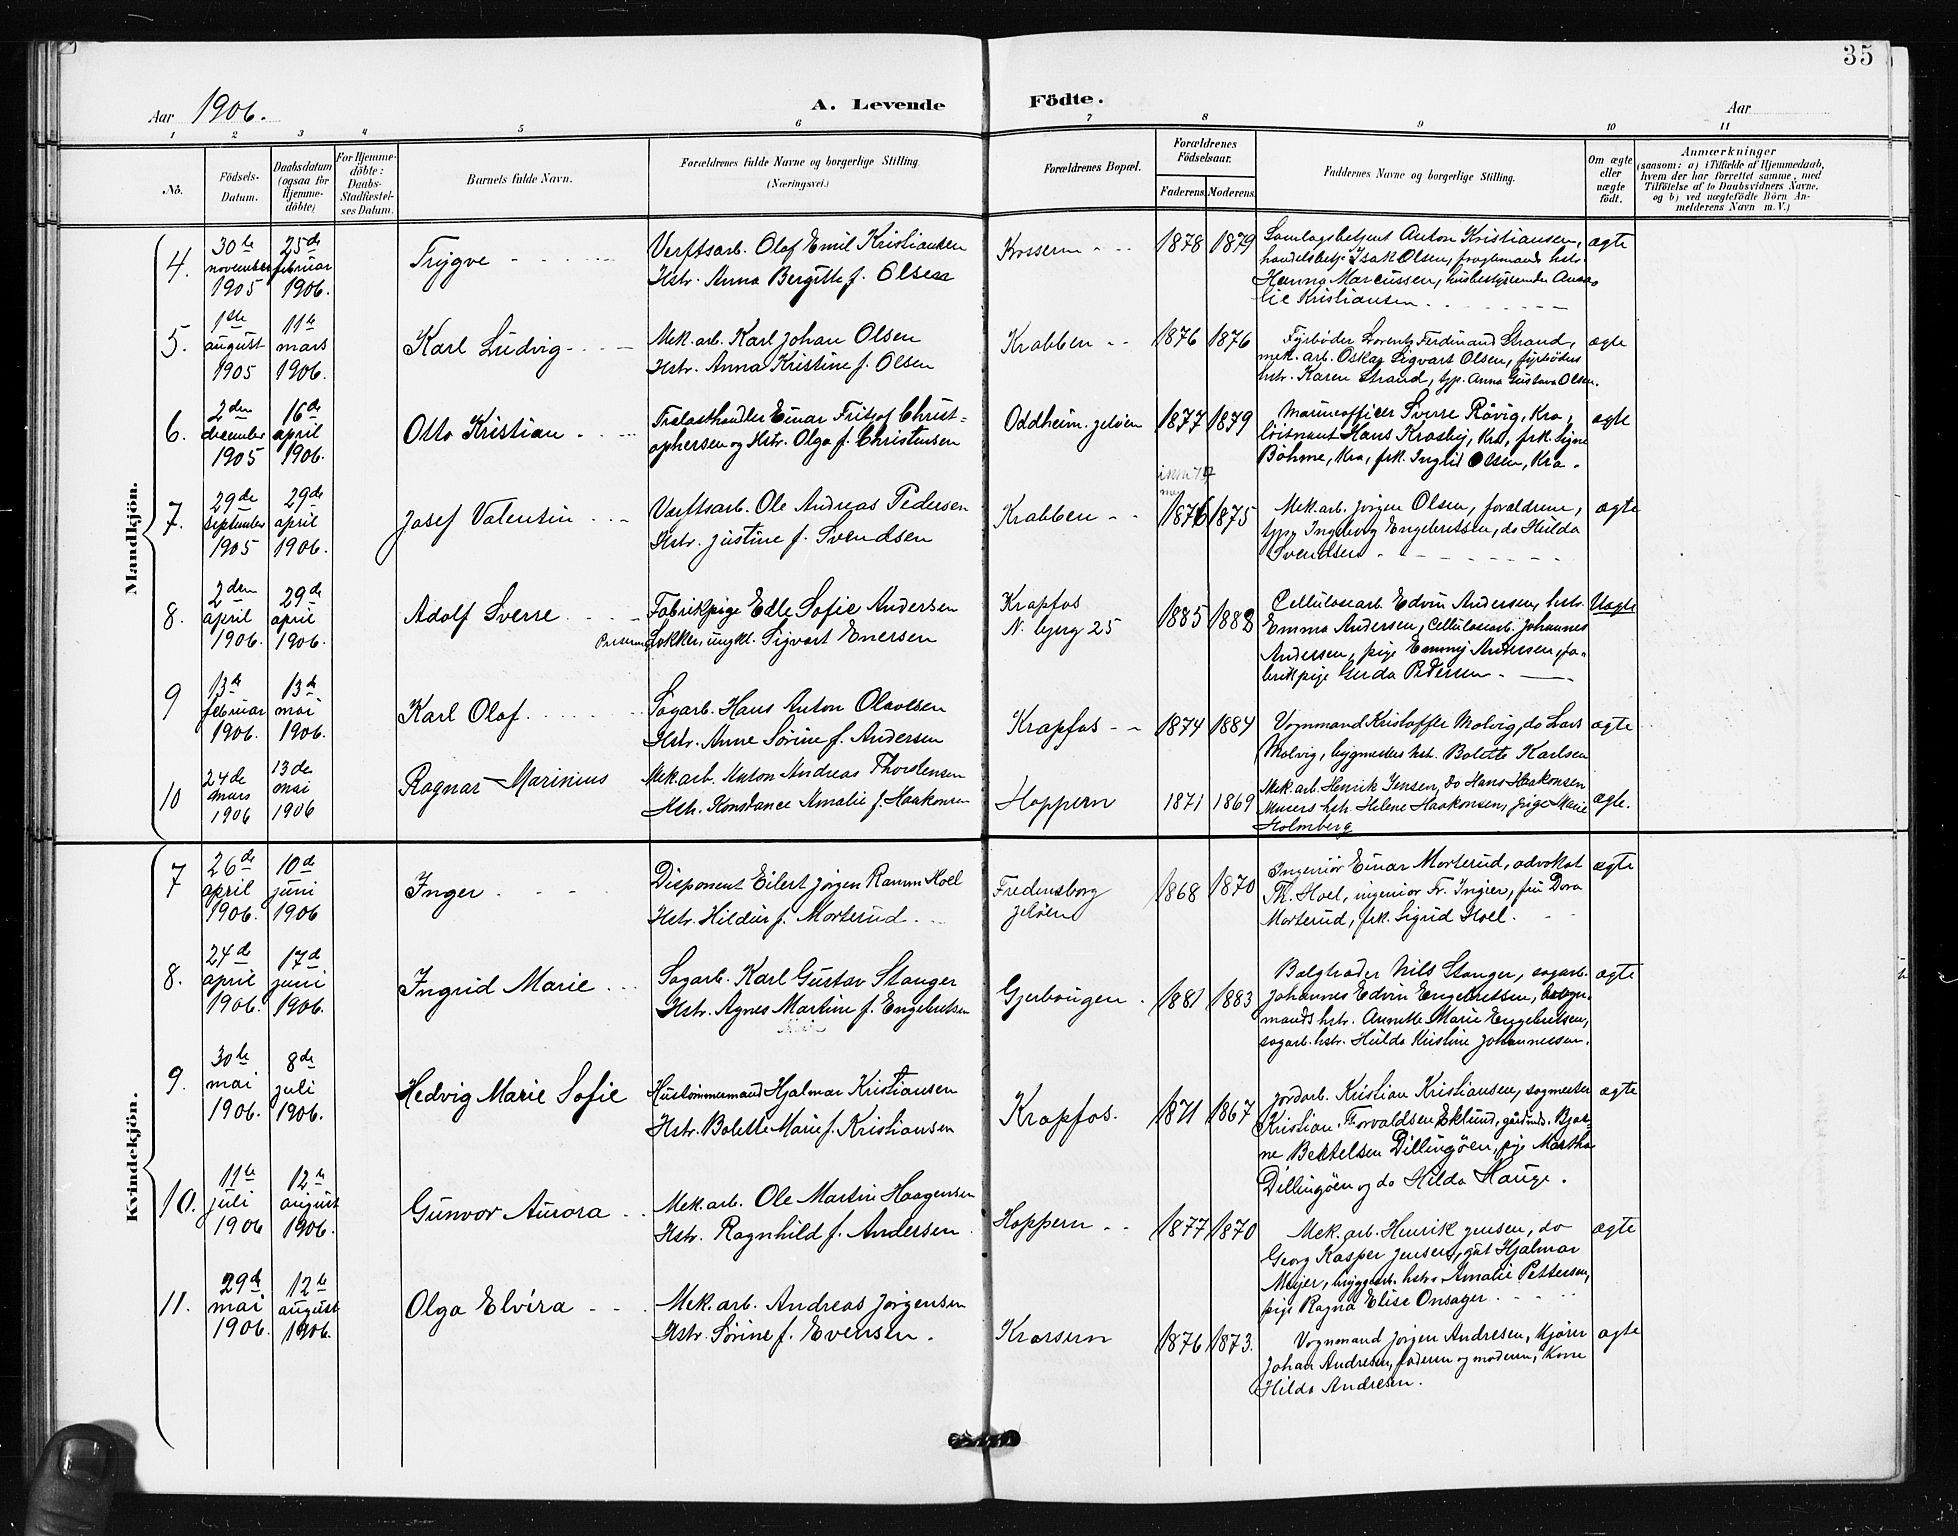 35
Aar 1906.
A. Levende Födte.
Aar
1 2 3 4 5 6 7 8 9 10 11
No.
Födsels-
Datum.
Daabsdatum
(ogsaa for
Hjemme-
döbte)
For Hjemme-
döbte:
Daabs-
Stadfæstel-
ses Datum.
Barnets fulde Navn.
Forældrenes fulde Navne og borgerlige Stilling.
(Næringsvei.)
Forældrenes Bopæl.
Forældrenes
Födselsaar.
Faderens. Moderens.
Faddernes Navne og borgerlige Stilling.
Om ægte
eller
uægte
födt.
Anmærkninger
(saasom: a) i Tilfælde af Hjemmedaab,
hvem der har forrettet samme, med
Tilföielse af to Daabsvidners Navne,
og b) ved uægtefödte Börn An-
melderens Navn m. V.)
Mandkjön.
4.
30te
november
1905
25de
februar
1906.
Trygve
Verftsarb. Olaf Emil Kristiansen
Hstr. Anna Bergitte f. Olsen
Krossern
1878 1879
Samlagsbetjent Anton Kristiansen,
handelsbetj. Isak Olsen, fragtemands hstr.
Hanna Marcussen, husbestyrerinde Ama-
lie Kristiansen
ægte
5.
1ste
august
1905
11te
mars
1906.
Karl Ludvig
Mek. arb. Karl Johan Olsen
Hstr. Anna Kristine f. Olsen
Krabben
1876 1876
Fyrbøder Lorentz Ferdinand Strand,
mek. arb. Oskar Sigvart Olsen, fyrbøders
hstr. Karen Strand, syp. Anna Gustava Olsen.
ægte
6.
2den
december
1905
16de
april
1906.
Otto Kristian
Trælasthandler Einar Fritjof Christ-
ophersen og Hstr. Olga f. Christensen
Oddheim. Jeløen
1877 1879
Marineofficer Sverre Røvig, Kra,
løitnant Hans Krosby, Kra, frk. Signe
Böhme, Kra, frk. Ingrid Olsen, Kra.
ægte
7.
29de
september
1905
29de
april
1906.
Josef Valentin
Værftsarb. Ole Andreas Pedersen
Hstr. Justine f. Svendsen
Krabben
1876 1875
Mek. arb. Jørgen Olsen, forældrene,
syp. Ingeborg Engebretsen, do Hulda
Svendsen
ægte
8.
2den
april
1906.
29de
april
1906.
Adolf Sverre
Fabrikpige Edle Sofie Andersen
Lokker, ungkl. Sigvart Enersen
Krapfos
N. bjerg 25
1885 1888
Cellulosearb. Edvin Andersen, hstr.
Emma Andersen, Cellulosearb. Johannes
Andersen, pige Emmy Andersen, fa-
brikpige Gerda Pedersen.
Uægte
9
13de
februar
1906.
13de
mai
1906.
Karl Olaf
Sagarb. Hans Anton Olavesen
Hstr. Anne Sørine f. Andersen
Krapfos
1874 1884
Vognmand Kristoffer Molvig, do Lars
Molvig, bygmesters hst. Bolette Karlsen
ægte
10
24de
mars
1906
13de
mai
1906
Ragnar Marinius
Mek. arb. Anton Andreas Thorstensen
Hstr. Konstance Amalie f. Haakonsen
Hoppern
1871 1869
Mek. arb. Henrik Jensen, do Hans Haakonsen
Murers hstr. Helene Haakonsen, pige Marie
Holmberg
ægte.
Kvindekjön.
7
26de
april
1906.
10de
juni
1906
Inger
Disponent Eilert Jørgen Ramm Hoel
Hstr. Hildur f. Morterud
Fredensborg
Jeløen
1868 1870
Ingeniør Einar Morterud, advokat
Th. Hoel, ingeniør Fr. Ingier, fru Dora
Morterud, frk. Sigrid Hoel.
ægte
8.
24de
april
1906.
17de
juni
1906.
Ingrid Marie
Sagarb. Karl Gustav Stanger
Hstr. Agnes Martine f. Engebretsen
Gjerbougen.
1881 1883
Bælgtræder Nils Stanger, sagarb.
Johannes Edvin Engebretsen,
mands hstr. Annette Marie Engebretsen,
sagarb. hstr. Hilda Kristine Johannessen.
ægte
9.
30te
mai
1906.
8de
juli
1906.
Hedvig Marie Sofie
Hustømmermand Hjalmar Kristiansen
Hstr. Bolette Marie f. Kristiansen
Krapfos.
1871 1867
Jordarb. Kristian Kristiansen, sagmester
Kristian Torvaldsen Eklund, gårdmd. Bjar-
ne Bertelsen Dillingøen, pige Martha
Dillingøen og do Hilda Hauge.
ægte
10.
11te
juli
1906
12te
august
1906.
Gunvor Aurora
Mek. arb. Ole Martin Haagensen
Hstr. Ragnhild f. Andersen
Hoppern
1877 1870
Mek. arb. Henrik Jensen, do
Georg Kasper Jensen, gut Hjalmar
Meijer, bryggearb. hstr. Amalie Pettersen,
pige Ragna Elise Onsager
ægte
11.
29de
mai
1906.
12te
august
1906.
Olga Elvira
Mek. arb. Andreas Jørgensen
Hstr. Sørine f. Evensen.
Krossern
1876 1873.
Vognmand Jørgen Andresen, Kjører
Johan Andresen, faderen og moderen, Kone
Hilda Andresen.
ægte